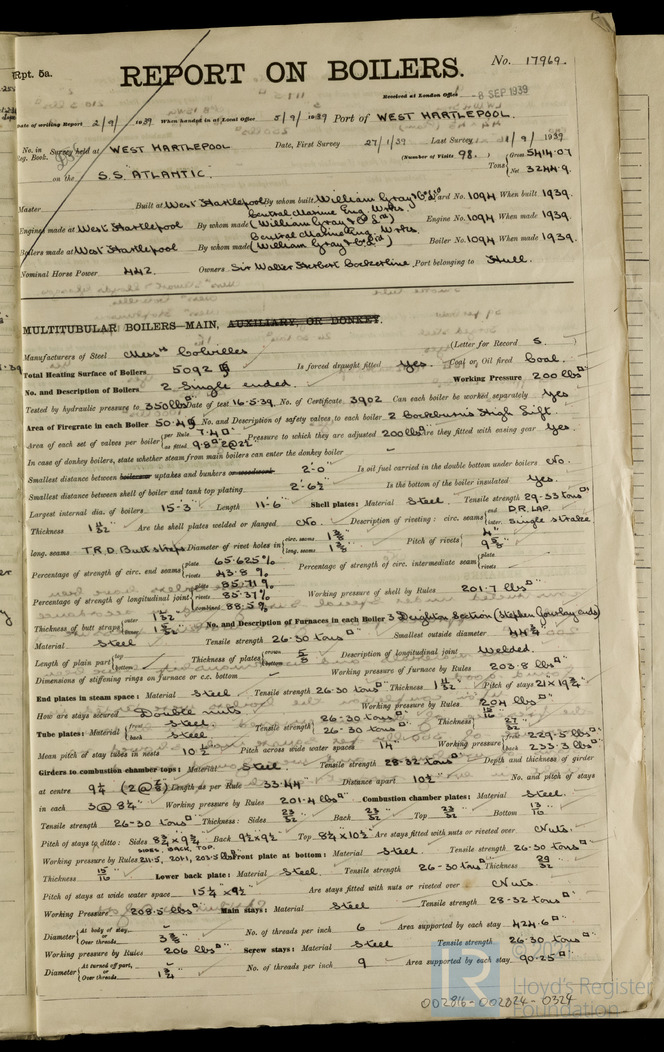 Rpt. 5a.
No. 17969.
REPORT ON BOILERS.
Received at London Office 8 SEP 1939
Date of writing Report 2/9/1939 When handed in at Local Office 5/9/1939 Port of WEST HARTLEPOOL.
No. in Reg. Book. Survey held at WEST HARTLEPOOL Date, First Survey 27/1/39 Last Survey 1/9/1939
(Number of Visits 98.) Tons Gross 5414.07 Net 3244.9.
on the S.S. "ATLANTIC."
Master Built at West Hartlepool By whom built William Gray & Co Ltd Yard No. 1094 When built 1939.
Engines made at West Hartlepool By whom made Central Marine Eng. Works. (William Gray & Co Ltd) Engine No. 1094 When made 1939.
Boilers made at West Hartlepool By whom made Central Marine Eng. Works. (William Gray & Co Ltd) Boiler No. 1094 When made 1939.
Nominal Horse Power 442. Owners Sir Walter Herbert Cockerline Port belonging to Hull.
MULTITUBULAR BOILERS—MAIN, AUXILIARY, OR DONKEY.
Manufacturers of Steel Messrs Colvilles (Letter for Record S.)
Total Heating Surface of Boilers 5092 Is forced draught fitted Yes. Coal or Oil fired Coal.
No. and Description of Boilers 2 Single ended. Working Pressure 200 lbs□"
Tested by hydraulic pressure to 350 lbs□" Date of test 16.5.39. No. of Certificate 3902 Can each boiler be worked separately Yes
Area of Firegrate in each Boiler 50.4 No. and Description of safety valves to each boiler 2 Cockburns High Lift.
Area of each set of valves per boiler per Rule 7.4□" as fitted 9.8□" 2@2½" Pressure to which they are adjusted 200 lbs□" Are they fitted with easing gear Yes.
In case of donkey boilers, state whether steam from main boilers can enter the donkey boiler –
Smallest distance between boilers or uptakes and bunkers or woodwork 2'-0" Is oil fuel carried in the double bottom under boilers No.
Smallest distance between shell of boiler and tank top plating 2'-6½" Is the bottom of the boiler insulated Yes.
Largest internal dia. of boilers 15'-3" Length 11'-6" Shell plates: Material Steel. Tensile strength 29-33 tons□"
Thickness 1 11/32" Are the shell plates welded or flanged No. Description of riveting: circ. seams end D.R. LAP. inter. Single strake
long. seams T.R.D. Butt straps Diameter of rivet holes in circ. seams 1 3/8" long. seams 1 3/8" Pitch of rivets 4" 9 5/8"
Percentage of strength of circ. end seams plate 65.625% rivets 43.8% Percentage of strength of circ. intermediate seam plate rivets
Percentage of strength of longitudinal joint plate 85.71% rivets 85.37% combined 88.5% Working pressure of shell by Rules 201.7 lbs□"
Thickness of butt straps outer 1 1/32" inner 1 5/32" No. and Description of Furnaces in each Boiler 3 Deighton Section (Stephen Gourlay ends)
Material Steel Tensile strength 26-30 tons□" Smallest outside diameter 44¾"
Length of plain part top bottom Thickness of plates crown 5/8 bottom 5/8 Description of longitudinal joint Welded.
Dimensions of stiffening rings on furnace or c.c. bottom Working pressure of furnace by Rules 203.8 lbs□"
End plates in steam space: Material Steel Tensile strength 26-30 tons□" Thickness 1 11/32" Pitch of stays 21 x 19¾"
How are stays secured Double nuts Working pressure by Rules 204 lbs□"
Tube plates: Material front Steel. back Steel Tensile strength 26-30 tons□" 26-30 tons□" Thickness 15/16" 27/32"
Mean pitch of stay tubes in nests 10½" Pitch across wide water spaces 14" Working pressure front 229.5 lbs□" back 233.3 lbs□"
Girders to combustion chamber tops: Material Steel. Tensile strength 28-32 tons□" Depth and thickness of girder
at centre 9¼" (2@⅞") Length as per Rule 33.44" Distance apart 10½" No. and pitch of stays
in each 3 @ 8¼" Working pressure by Rules 201.4 lbs□" Combustion chamber plates: Material Steel.
Tensile strength 26-30 tons□" Thickness: Sides 23/32" Back 23/32" Top 23/32" Bottom 13/16"
Pitch of stays to ditto: Sides 8¼ x 9¾" Back 9½ x 9½" Top 8¼ x 10½" Are stays fitted with nuts or riveted over Nuts.
SIDES, BACK, TOP.
Working pressure by Rules 211.5, 201.1, 203.5 lbs□" Front plate at bottom: Material Steel. Tensile strength 26-30 tons□"
Thickness 15/16" Lower back plate: Material Steel. Tensile strength 26-30 tons□" Thickness 29/32"
Pitch of stays at wide water space 15¼" x 9½" Are stays fitted with nuts or riveted over Nuts.
Working Pressure 208.5 lbs□" Main stays: Material Steel Tensile strength 28-32 tons□"
Diameter At body of stay, or Over threads 3⅜" No. of threads per inch 6 Area supported by each stay 424.6□"
Working pressure by Rules 206 lbs□" Screw stays: Material Steel Tensile strength 26-30 tons□"
Diameter At turned off part, or Over threads 1¾" No. of threads per inch 9 Area supported by each stay 90.25□"
002816-002824-0324
Lloyd's Register
Foundation